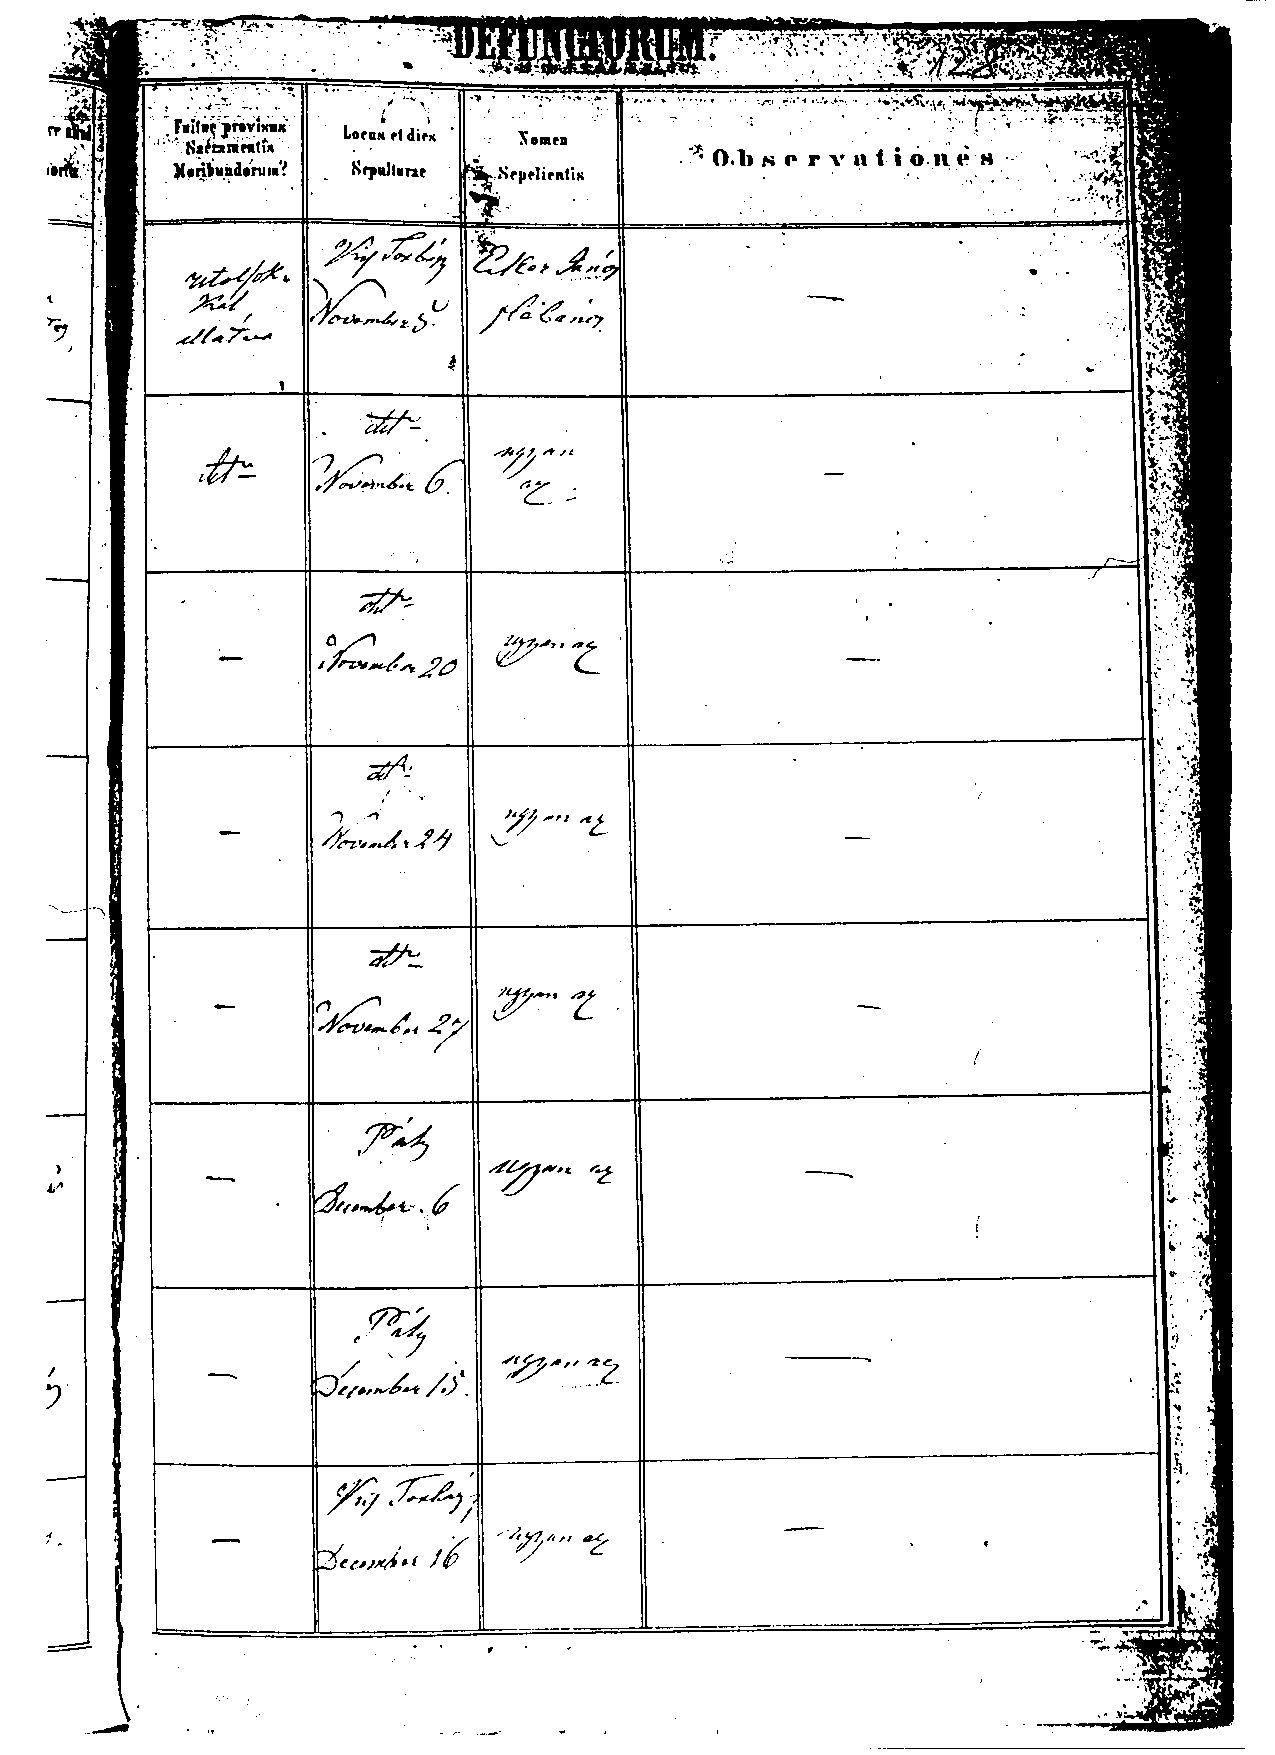 DEFUNCTORUM.
128
Fuitne provisus
Sacramentis
Moribundorum?
Locus et dies
Sepulturae
Nomen
Sepelientis
Observationes
ellátva
November 5.
János
plébános
—
dtto
dtto
November 6.
ugyan
az
—
—
dtto
November 20
ugyan az
—
—
dtto
November 24
ugyan az
—
—
dtto
November 27
ugyan az
—
—
Páty
December 6
ugyan az
—
—
Páty
December 15.
ugyan az
—
—
December 16
ugyan az
—